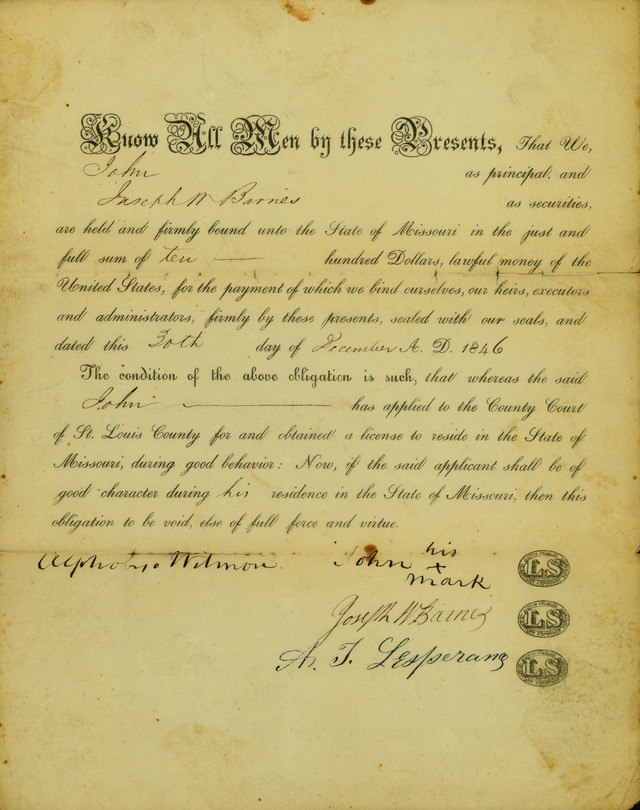 Know All Men by these Presents, That We,
John as principal, and
Joseph W Barnes as securities,
are held and firmly bound unto the State of Missouri in the just and
full sum of ten — hundred Dollars, lawful money of the
United States, for the payment of which we bind ourselves, our heirs, executors
and administrators, firmly by these presents, sealed with our seals, and
dated this 30th day of December A. D. 1846
The condition of the above obligation is such, that whereas the said
John — has applied to the County Court
of St. Louis County for and obtained a license to reside in the State of
Missouri, during good behavior: Now, if the said applicant shall be of
good character during his residence in the State of Missouri, then this
obligation to be void, else of full force and virtue.
his
John +
mark
LS
Joseph W Barnes
LS
LS